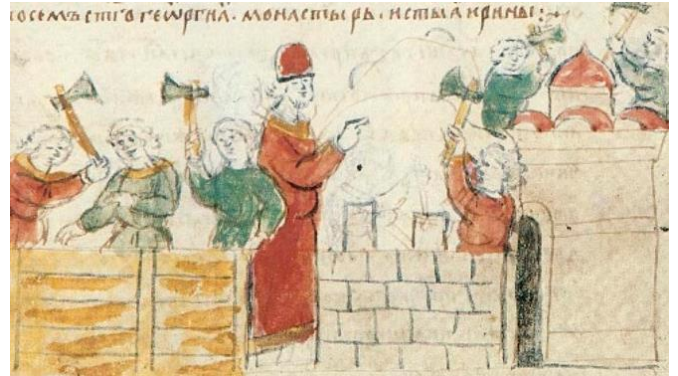 посемъ стго геѡргиꙗ. монастырь. истыꙗ ирины: